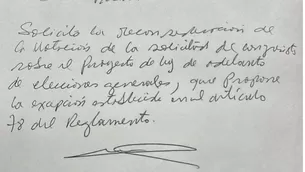 Solicito la reconsideración de
la votación de la solicitud de conjunto
sobre el Proyecto de ley de adelanto
de elecciones generales, que propone
la establecida en el artículo
78 del Reglamento.